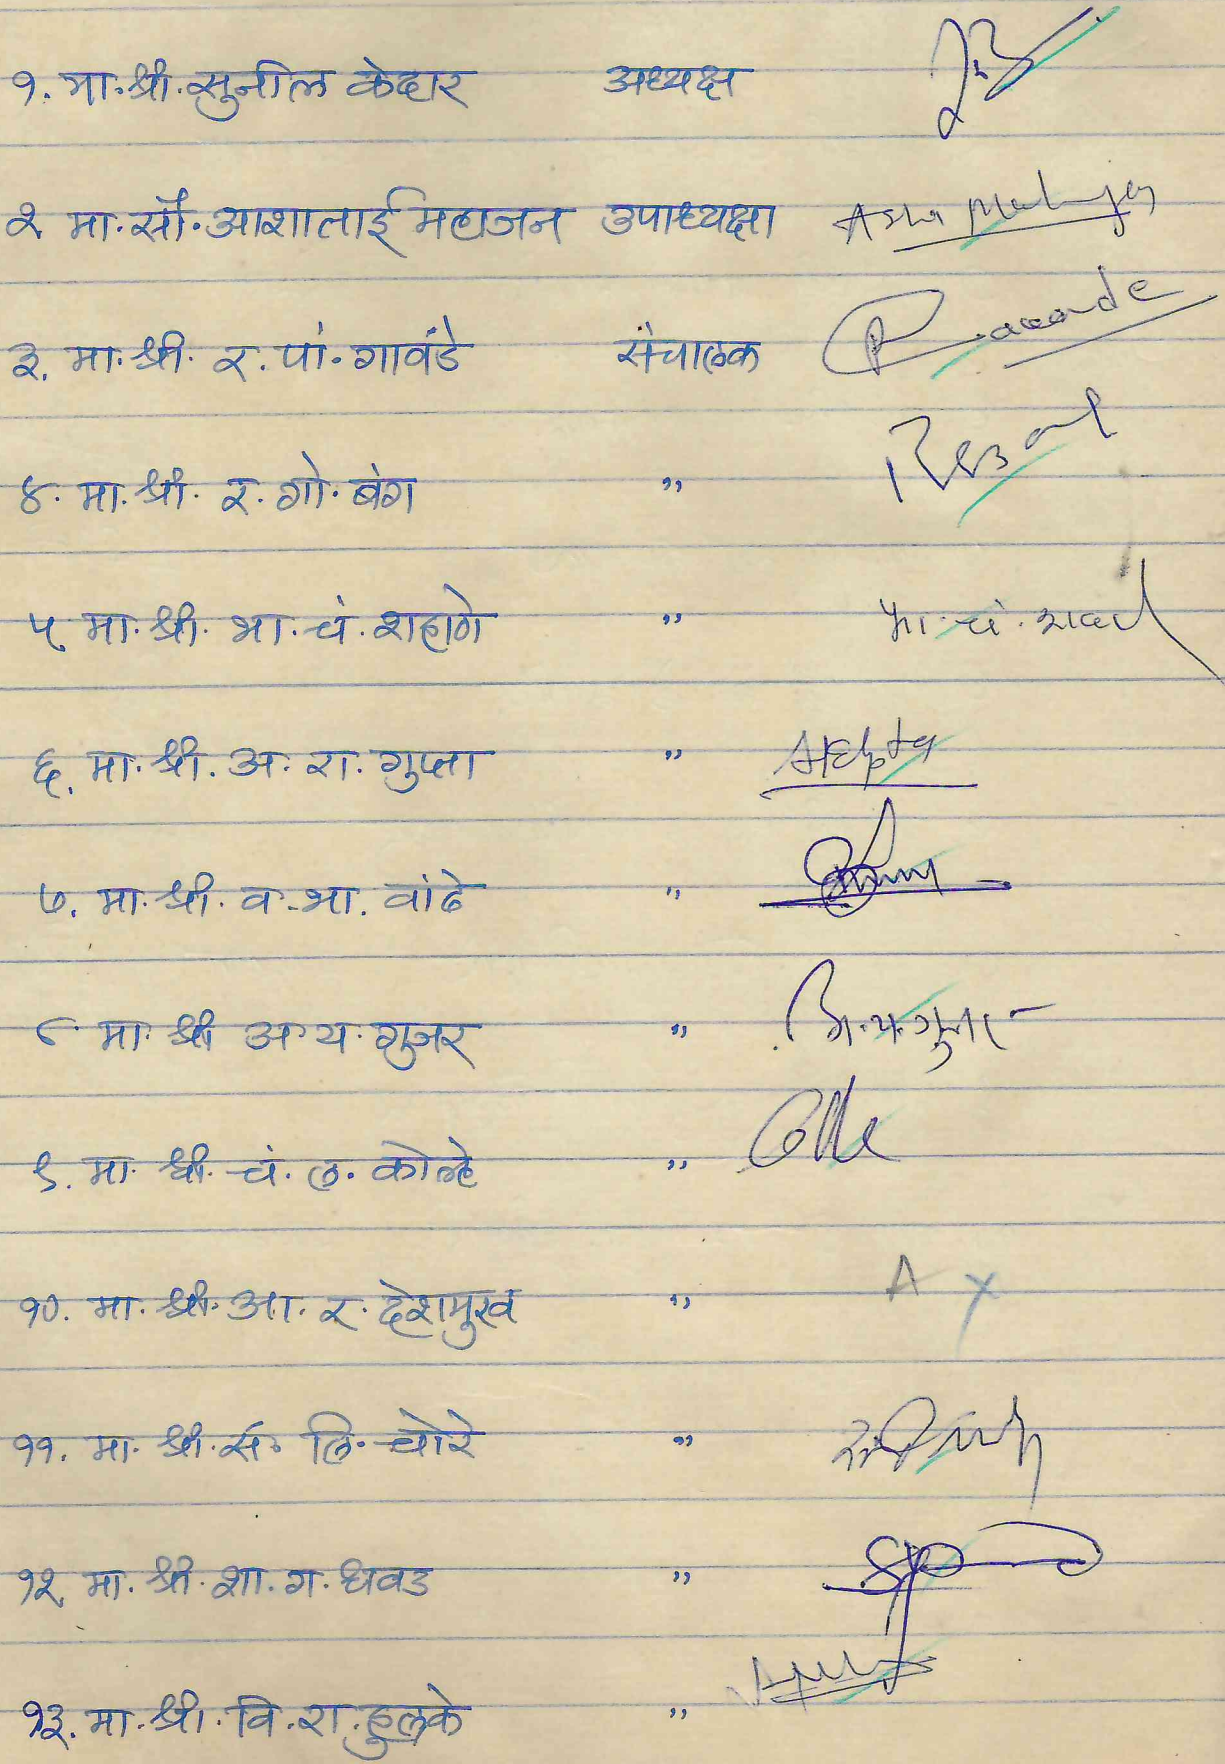 १. मा. श्री. सुनील केदार अध्यक्ष
२. मा. सौ. आशाताई महाजन उपाध्यक्षा
३. मा. श्री. र. पां. गावंडे संचालक
४. मा. श्री. र. गो. बंग ,,
५. मा. श्री. भा. चं. शहाणे ,, भा. चं.
६. मा. श्री. अ. रा. गुप्ता ,,
७. मा. श्री. व. भा. वांढे ,,
८ मा. श्री अ. य. गुजर ,,
९. मा. श्री. चं. ल. कोल्हे ,,
१०. मा. श्री. आ. र. देशमुख ,, A X
११. मा. श्री. सं. लि. चोरे ,,
१२. मा. श्री. शा. ग. धवड ,,
१३. मा. श्री. वि. रा. हुलके ,,